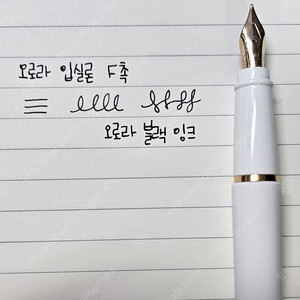 오로라 입실론 F촉
오로라 블랙 잉크